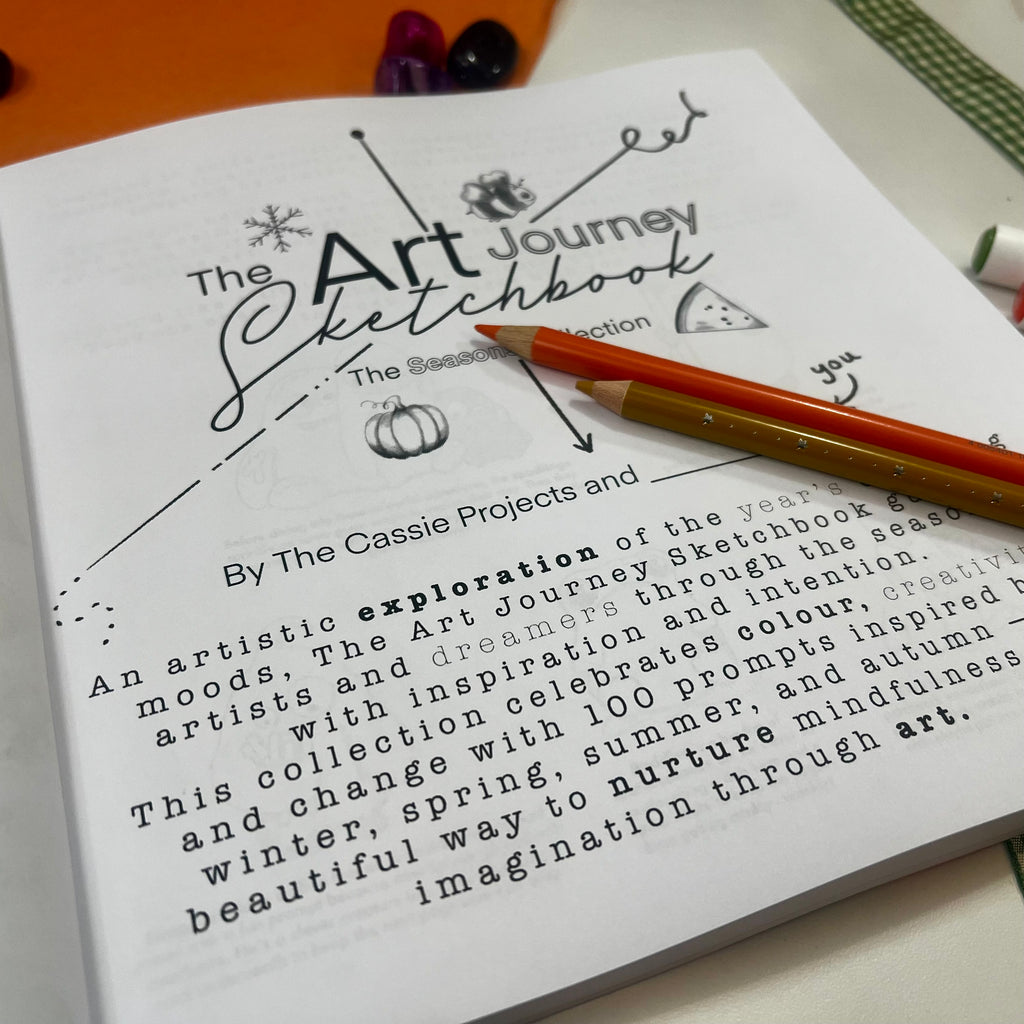 The Art Journey
Sketchbook
The
you
By The Cassie Projects and
An artistic exploration of the year's
moods, The Art Journey Sketchbook
artists and dreamers through the
with inspiration and intention.
This collection celebrates colour,
and change with 100 prompts inspired
winter, spring, summer, and autumn —
beautiful way to nurture mindfulness
imagination through art.